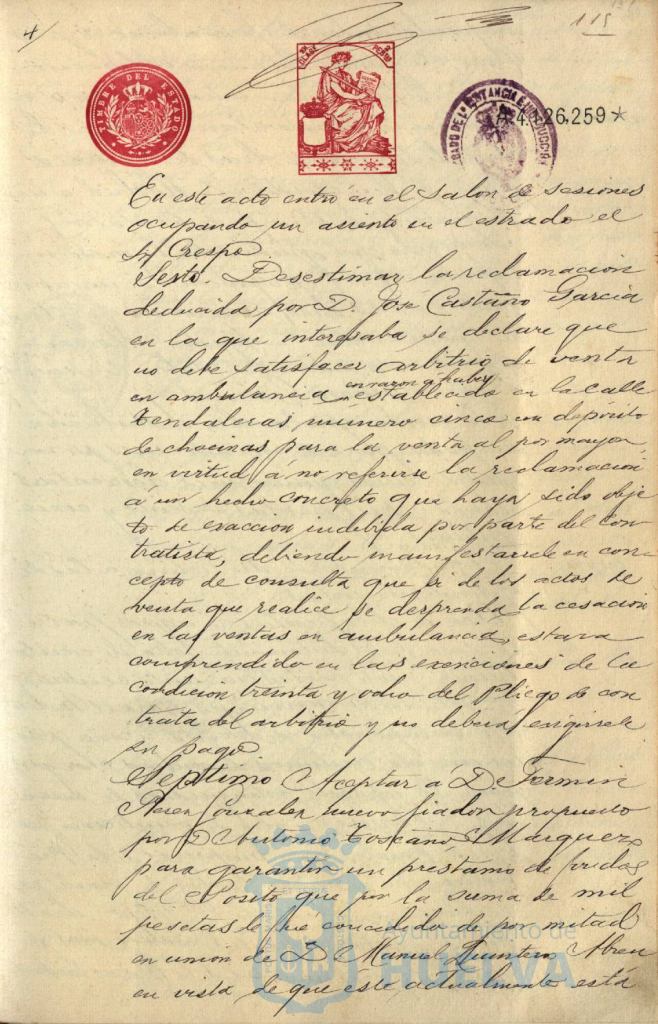 4
115
TIMBRE DEL ESTADO
CLASE
PESETAS
JUZGADO DE 1ª INSTANCIA E INSTRUCCIÓN
A4.126.259*
En este acto entró en el salon de sesiones
ocupando un asiento en el estrado el
Sr Crespo.
Sesto. Desestimar la reclamacion
deducida por D. José Castaño Garcia
en la que interesaba se declare que
no debe satisfacer arbitrio de venta
en ambulancia en razon á haber establecido en la calle
Tendaleras número cinco un deposito
de chacinas para la venta al por mayor,
en virtud á no referirse la reclamacion
á un hecho concreto que haya sido obje
to de exaccion indebida por parte del con
tratista, debiendo manifestarsele en con
cepto de consulta que si de los actos de
venta que realice se desprenda la cesacion
en las ventas en ambulancia, estara
comprendido en las exenciones de la
condicion treinta y ocho del Pliego de con
trata del arbitrio y no deberá exigirsele
su pago
Septimo Aceptar á D. Fermin
Perez Gonzalez nuevo fiador propuesto
por D Antonio Toscano Marquez
para garantir un prestamo de fondos
del Posito que por la suma de mil
pesetas le fué concedido de por mitad
en union de D. Manuel Quintero Abreu
en vista de que este actualmente está
Ayuntamiento de
HUELVA